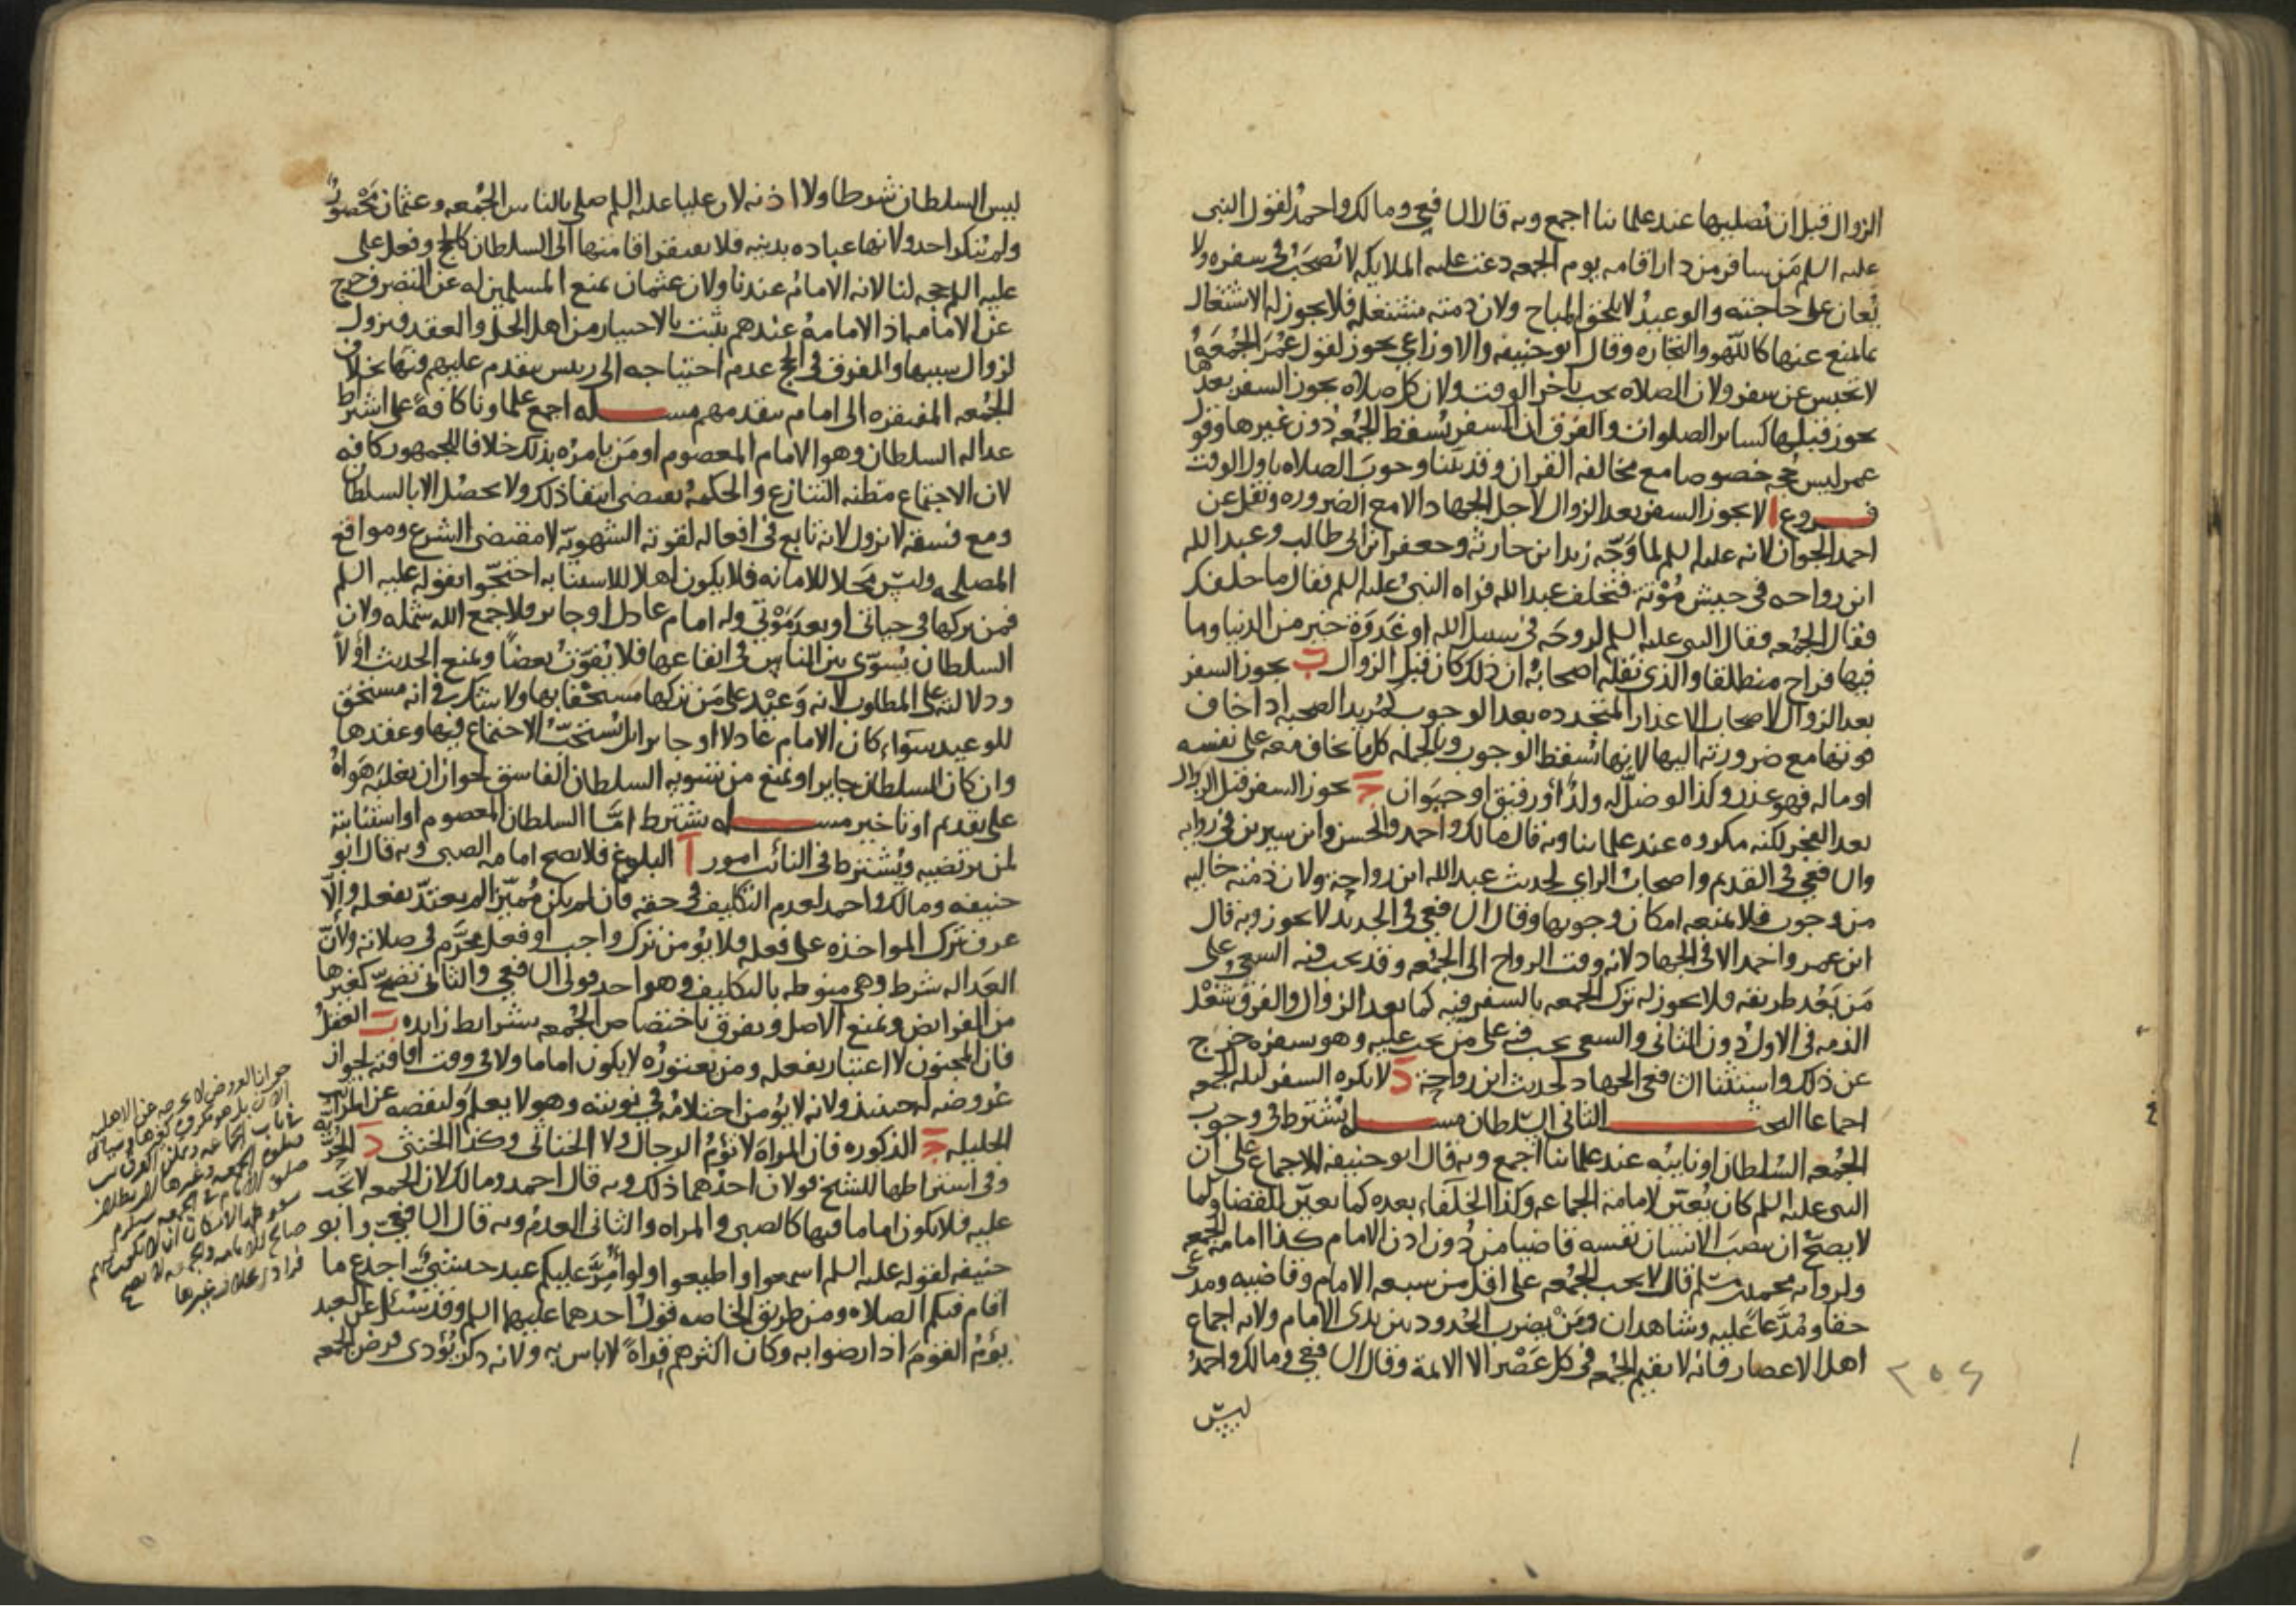 الزوال قبل ان يصليها عند علمائنا اجمع وبه قال الشافعي ومالك واحمد لقول النبي
عليه السلم من سافر من دار اقامه يوم الجمعه دعت عليه الملايكه لا يصحب في سفره ولا
يعان على حاجته والوعيد لا يلحق المباح ولان ذمته مشتغله فلا يجوز له الاشتغال
بما يمنع عنها كاللهو والتجاره وقال ابو حنيفه والاوزاعي يجوز لقول عمر الجمعه
لا تحبس عن سفر ولان الصلاه تجب باخر الوقت ولان كل صلاه يجوز السفر بعدها
يجوز قبلها كساير الصلوات والفرق ان السفر يسقط الجمعه دون غيرها وقول
عمر ليس حجه خصوصا مع مخالفه القران وقد بينا وجوب الصلاه باول الوقت
فروع ا لا يجوز السفر بعد الزوال لاجل الجهاد الا مع الضروره ونقل عن
احمد الجواز لانه عليه السلم لما وجه زيد ابن حارثه وجعفر ابن ابي طالب وعبد الله
ابن رواحه في جيش مؤته فتخلف عبد الله فراه النبي عليه السلم فقال ما خلفك
فقال الجمعه فقال النبي عليه السلم لروحه في سبيل الله او غدوة خير من الدنيا وما
فيها فراح منطلقا والذي نقله اصحابه ان ذلك كان قبل الزوال ب يجوز السفر
بعد الزوال لاصحاب الاعذار المتجدده بعد الوجوب كمريد الصحبه اذا خاف
فوتها مع ضرورته اليها لانها تسقط الوجوب وبالجمله كل ما يخاف معه على نفسه
او ماله فهو عذر وكذا لو ضل له ولد او رقيق او حيوان ج يجوز السفر قبل الزوال
بعد الفجر لكنه مكروه عند علمائنا وبه قال مالك واحمد والحسن وابن سيرين في روايه
والشافعي في القديم واصحاب الراي لحديث عبد الله ابن رواحة ولان ذمته خاليه
من وجوب فلا يمنعه امكان وجوبها وقال الشافعي في الجديد لا يجوز وبه قال
ابن عمر واحمد الا في الجهاد لانه وقت الرواح الى الجمعه وقد يجب فيه السعي على
من بعد طريقه فلا يجوز له ترك الجمعه بالسفر فيه كما بعد الزوال والفرق شغل
الذمه في الاول دون الثاني والسعي يجب فيه على من يجب عليه وهو بسفره خرج
عن ذلك واستثنا الشافعي الجهاد لحديث ابن رواحة د لا يكره السفر ليله الجمعه
اجماعا البحث الثاني السلطان مسله يشترط في وجوب
الجمعه السلطان او نايبه عند علمائنا اجمع وبه قال ابو حنيفه للاجماع على ان
النبي عليه السلم كان يعين لامامة الجماعه وكذا الخلفاء بعده كما يعين للقضا وكما
لا يصح ان ينصب الانسان نفسه قاضيا من دون اذن الامام كذا امامه الجمعه
ولروايه محمد بن مسلم قال لا يجب الجمعه على اقل من سبعه الامام وقاضيه ومدعي
حقا ومدعا عليه وشاهدان ومن يضرب الحدود بين يدي الامام ولانه اجماع
اهل الاعصار فانه لا يقيم الجمعه في كل عصر الا الايمة وقال الشافعي ومالك واحمد
ليس
٢٥٤
ليس السلطان شرطا ولا اذنه لان عليا عليه السلم صلى بالناس الجمعه وعثمان محصور
ولم ينكر احد ولانها عباده بدنيه فلا يفتقر اقامتها الى السلطان كالحج وفعل علي
عليه السلم حجه لنا لانه الامام عندنا ولان عثمان بمنع المسلمين له عن التصرف خرج
عن الامامه اذ الامامة عندهم يثبت بالاختيار من اهل الحل والعقد ويزول
لزوال سببها والمفرق في الحج عدم احتياجه الى رييس يتقدم عليهم فيها بخلاف
الجمعه المفتقره الى امام يتقدمهم مسله اجمع علماونا كافة على اشتراط
عداله السلطان وهو الامام المعصوم او من يامره بذلك خلافا للجمهور كافه
لان الاجتماع مظنه التنازع والحكمه يقتضي انتفا ذلك ولا يحصل الا بالسلطان
ومع فسقه لا يزول لانه تابع في افعاله لقوته الشهويه لا مقتضى الشرع ومواقع
المصلحه وليس محلا للامانه فلا يكون اهلا للاستنابه احتجوا بقوله عليه السلم
فمن تركها في حياتي او بعد موتي وله امام عادل او جاير فلا جمع الله شمله ولان
السلطان يسوي بين الناس في ايقاعها فلا يفوت بعضا ويمنع الحديث اولا
ودلالته على المطلوب لانه وعيد على من تركها مستخفا بها ولا شك في انه مستحق
للوعيد سواء كان الامام عادلا او جايرا بل يستحب الاجتماع فيها وعقدها
وان كان السلطان جايرا ويمنع من تسويه السلطان الفاسق لجواز ان يغلبه هواه
على تقديم او تاخير مسله يشترط اما السلطان المعصوم او استنابته
لمن يرتضيه ويشترط في النائب امور ا البلوغ فلا يصح امامه الصبي وبه قال ابو
حنيفه ومالك واحمد لعدم التكليف في حقه فان لم يكن مميزا لم يعتد بفعله والا
عرف ترك المواخذه على فعله فلا يؤمن ترك واجب او فعل محرم في صلاته ولان
العداله شرط وهي منوطه بالتكليف وهو احد قولي الشافعي والثاني تصح كغيرها
من الفرايض ويمنع الاصل ويفرق باختصاص الجمعه بشرايط زايده ب العقل
فان المجنون لا اعتبار بفعله ومن يعتوره لا يكون اماما ولا في وقت افاقته لجواز
عروضه له حينيذ ولانه لا يؤمن احتلامه في نوبته وهو لا يعلم ولنقصه عن المراتب
الجليله ج الذكوره فان المراة لا تؤم الرجال ولا الخناثى وكذا الخنثى د الحرية
وفي اشتراطها للشيخ قولان احدهما ذلك وبه قال احمد ومالك لان الجمعه لا تجب
عليه فلا يكون اماما فيها كالصبي والمراه والثاني العدم وبه قال الشافعي وابو
حنيفه لقوله عليه السلم اسمعوا واطيعوا ولو امر عليكم عبد حبشي اجدع ما
اقام فيكم الصلاه ومن طريق الخاصه قول احدهما عليهما السلم وقد سئل عن العبد
يؤم القوم اذا رضوا به وكان اكثرهم قراة لا باس به ولانه ذكر يؤدي فرض الجمعه